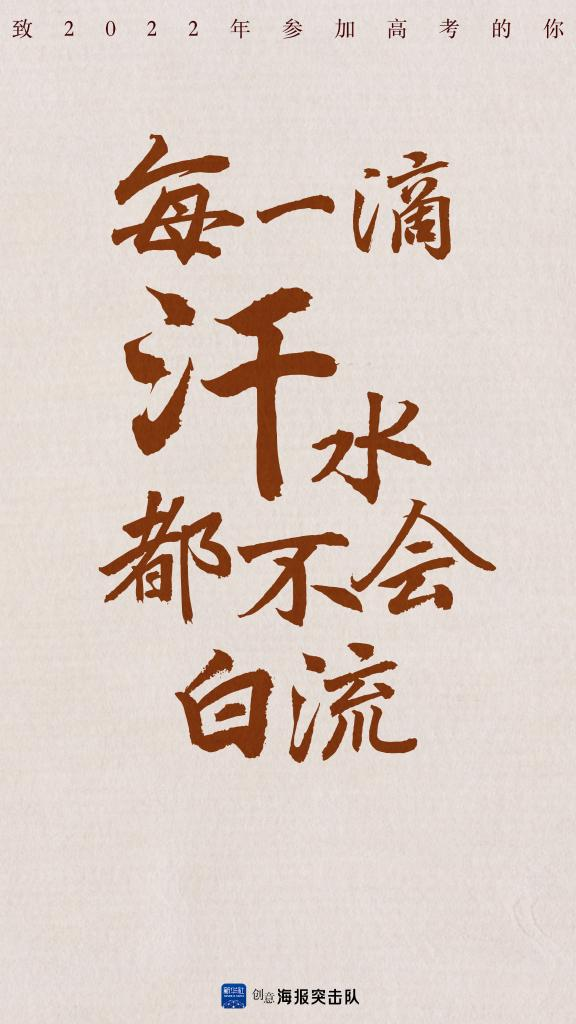 致2022年参加高考的你
每一滴
汗水
都不会
白流
新华社
创意 海报突击队